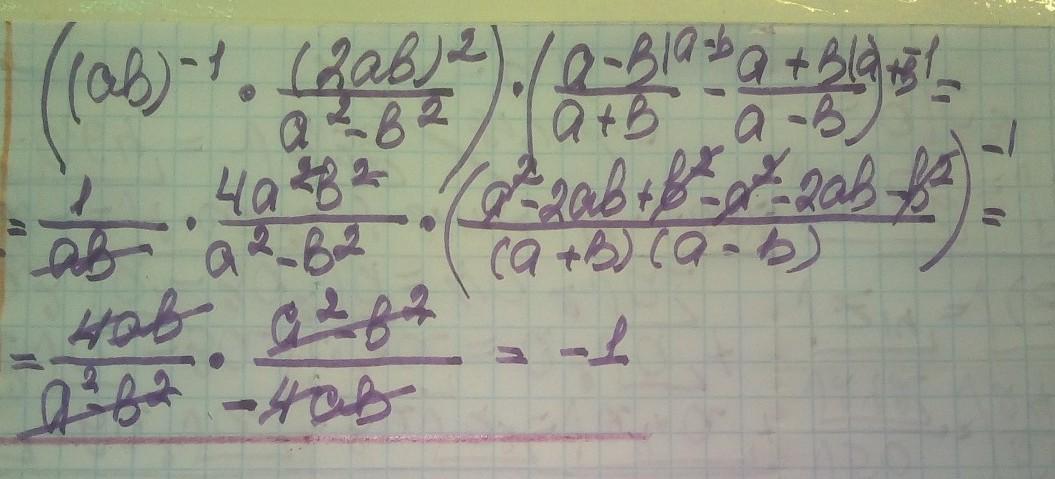 ((ab)⁻¹ · (2ab)²/(a²-b²)) · ((a-b)/(a+b) |a-b - (a+b)/(a-b) |a+b)⁻¹ =
= 1/(ab) · 4a²b²/(a²-b²) · ((a²-2ab+b²-a²-2ab-b²)/((a+b)(a-b)))⁻¹ =
= 4ab/(a²-b²) · (a²-b²)/(-4ab) = -1